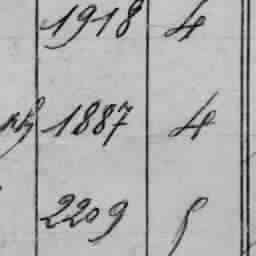 1918 4
1887 4
2209 5